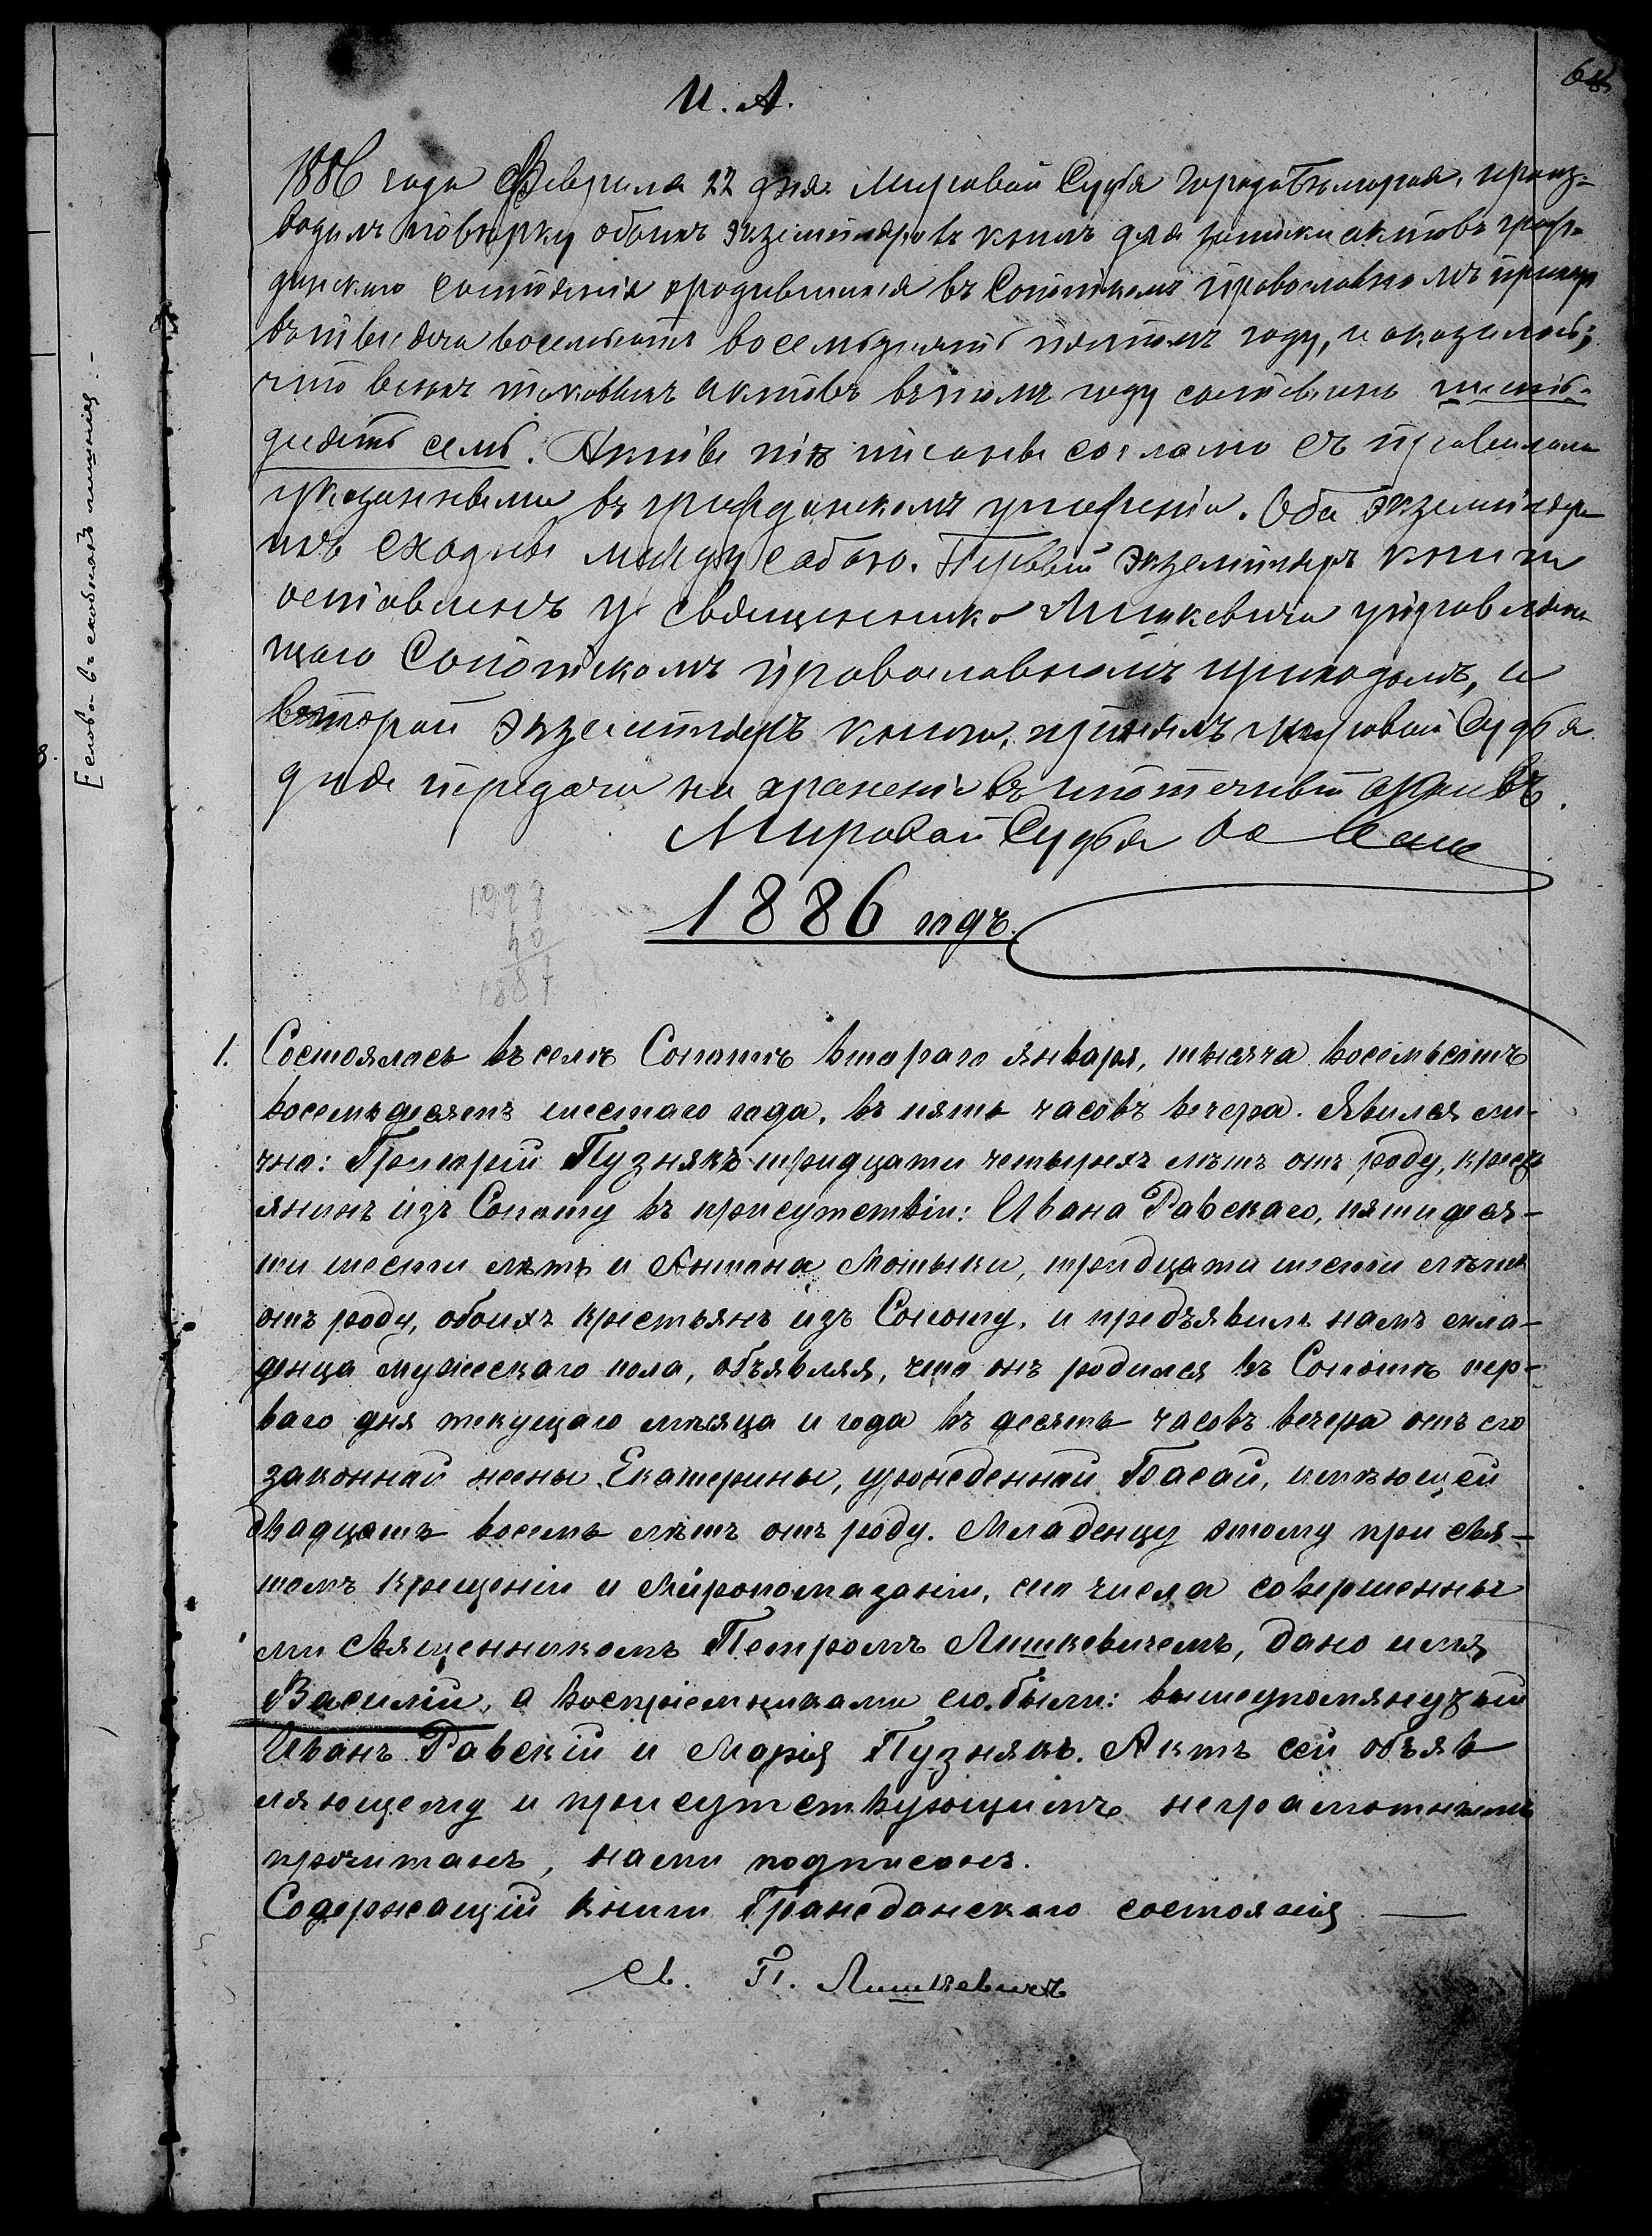 И. А.
68
1886 года Февраля 22 дня Мировой Судья города Бѣлгорая, произ-
водилъ повѣрку обоихъ экземпляровъ книгъ для записки актовъ граж-
данскаго состоянія о родившихся въ Сопотскомъ православномъ приходѣ
въ тысяча восемьсотъ восемьдесятъ пятомъ году, и оказалось;
что всѣхъ таковыхъ актовъ въ томъ году составлено шесть-
десятъ семь. Акты тѣ писаны согласно съ правилами
указанными въ гражданскомъ уложеніи. Оба экземпляра
ихъ сходны между собою. Первый экземпляръ книги
оставленъ у священника Лишкевича управляю-
щаго Сопотскомъ православномъ приходомъ, и
второй экземпляръ книги, принялъ мировой Судья
для передачи на храненіе въ ипотечный архивъ.
Мировой Судья
1886 годъ.
1927
40
1887
1. Состоялось въ селѣ Сопотѣ втораго Января, тысяча восемьсотъ
восемьдесятъ шестаго года, въ пять часовъ вечера. Явился ли-
чно: Григорій Пузнякъ тридцати четырехъ лѣтъ отъ роду, крест
янинъ изъ Сопоту въ присутствіи: Ивана Равскаго, пятидеся-
ти шести лѣтъ и Антона Мотыки, тридцати шести лѣтъ
отъ роду, обоихъ крестьянъ изъ Сопоту, и предъявилъ намъ мла-
денца мужескаго пола, объявляя, что онъ родился въ Сопотѣ пер-
ваго дня текущаго мѣсяца и года въ десять часовъ вечера отъ его
законной жены Екатерины, урожденной Басай, имѣющей
двадцать восемь лѣтъ отъ роду. Младенцу этому при свя-
томъ крещеніи и Мѵропомазаніи, сего числа совершенны
ми священникомъ Петромъ Лишкевичемъ, дано имя
Василій, а воспріемниками его были: вышеупомянутый
Иванъ Равскій и Марія Пузнякъ. Актъ сей объяв
ляющему и присутствующимъ неграмотнымъ
прочитанъ, нами подписанъ.
Содержащій книги Гражданскаго состоянія
Св. П. Лишкевичъ
[слова въ скобкахъ лишнія